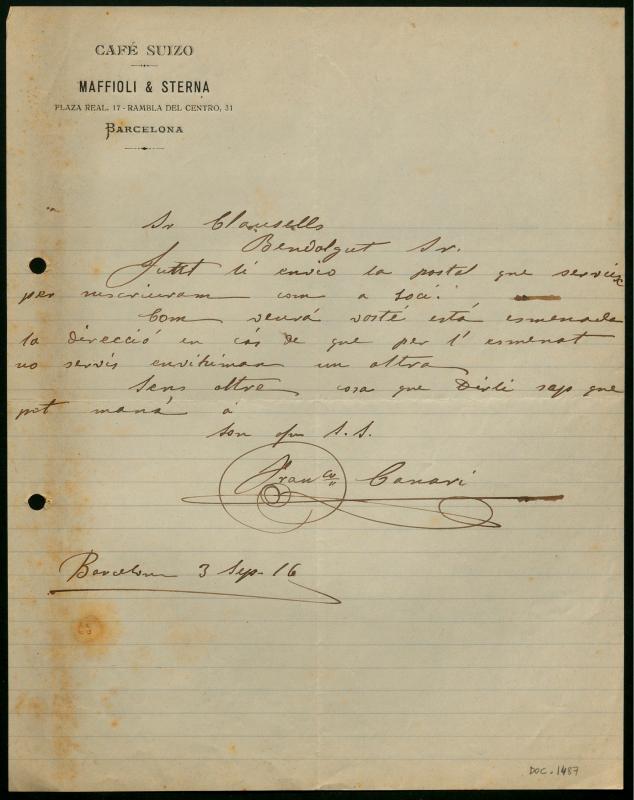 CAFÉ SUIZO
MAFFIOLI & STERNA
PLAZA REAL, 17 - RAMBLA DEL CENTRO, 31
BARCELONA
Sr Clausells
Benvolgut Sr.
Junt li envio la postal que serveix
per inscriurem com a soci.
Com veurá vosté está esmenada
la direcció en cás de que per l'esmenat
no servís envihimen un altra
Sens altre cosa que Dirli sap que
pot maná á
son afm S.S.
Franco Canari
Barcelona 3 Sep. 16
DOC. 1487